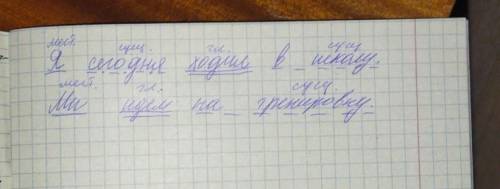 мест. сущ. гл. сущ.
Я сегодня ходил в школу.
мест. гл. сущ.
Ми идем на тренировку.